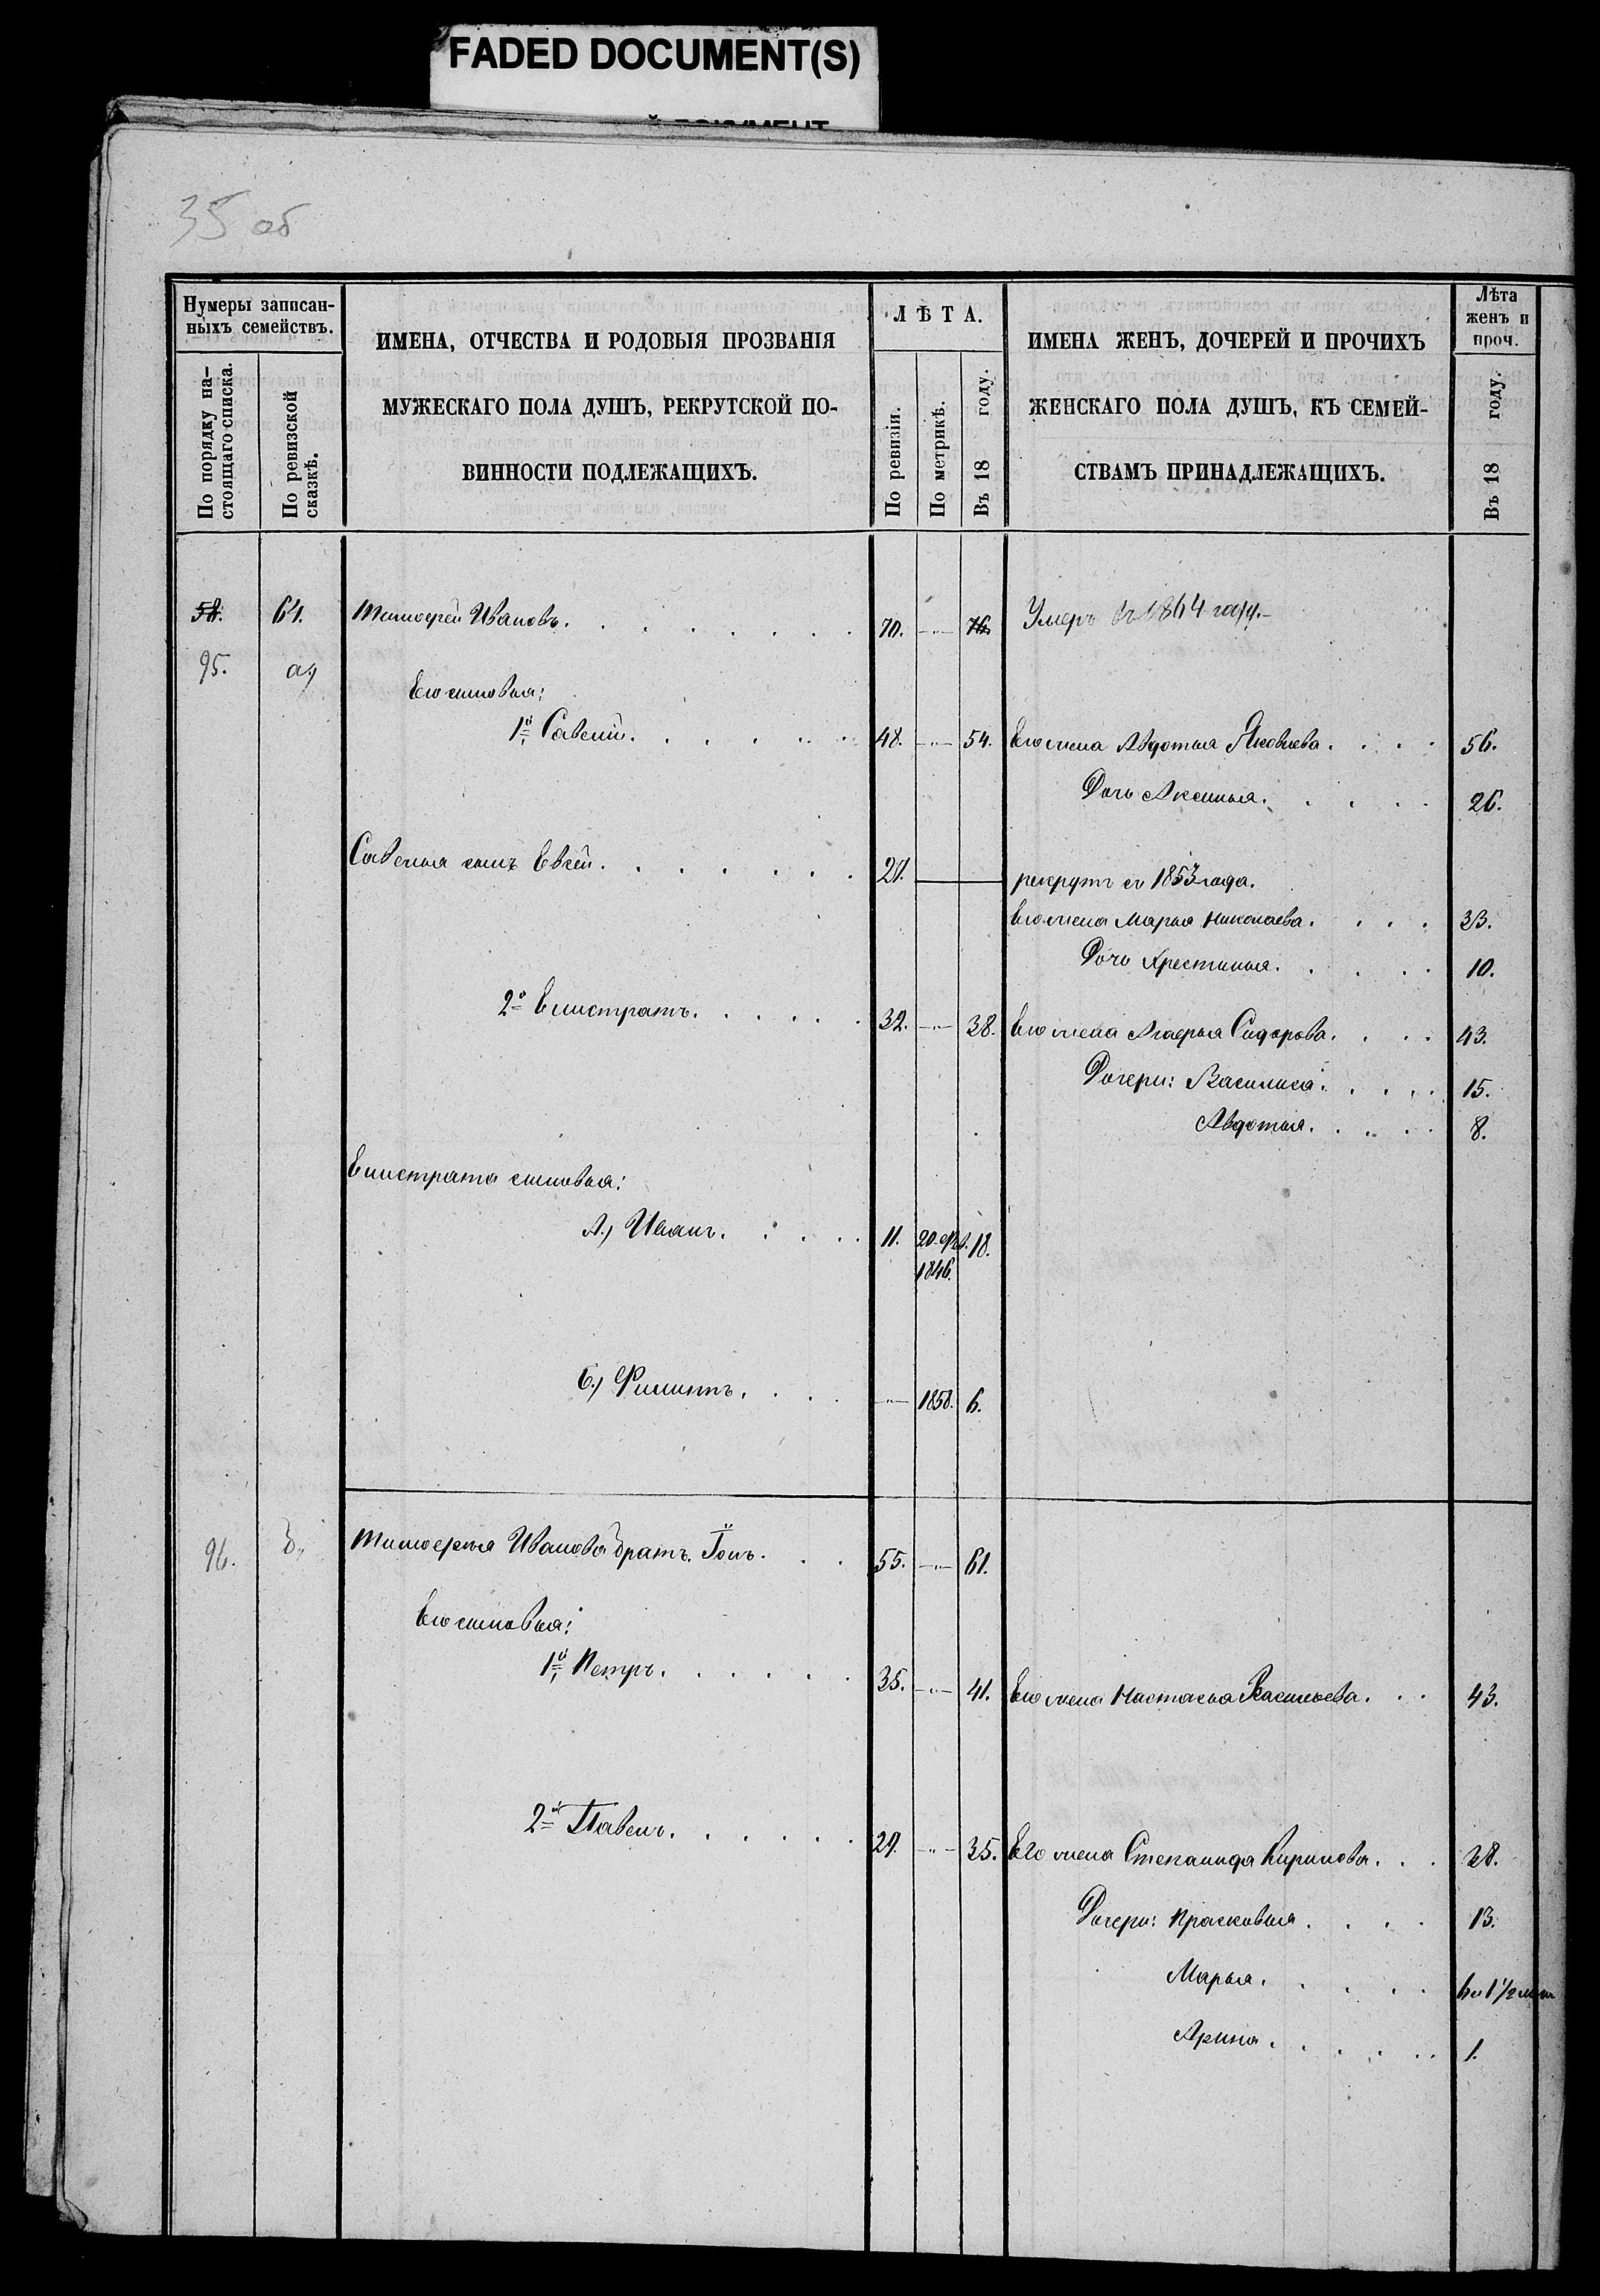 FADED DOCUMENT(S)
35 об
Нумеры записан-
ныхъ семействъ.
По порядку на-
стоящаго списка.
По ревизской
сказкѣ.
ИМЕНА, ОТЧЕСТВА И РОДОВЫЯ ПРОЗВАНІЯ
МУЖЕСКАГО ПОЛА ДУШЪ, РЕКРУТСКОЙ ПО-
ВИННОСТИ ПОДЛЕЖАЩИХЪ.
ЛѢТА.
По ревизіи.
По метрикѣ.
Въ 18 году.
ИМЕНА ЖЕНЪ, ДОЧЕРЕЙ И ПРОЧИХЪ
ЖЕНСКАГО ПОЛА ДУШЪ, КЪ СЕМЕЙ-
СТВАМЪ ПРИНАДЛЕЖАЩИХЪ.
Лѣта
женъ и
проч.
Въ 18 году.
58. 61. Тимофей Ивановъ. 70. -"- 76. Умеръ въ 1864 году.-
95. а,)
Его сыновья:
1й Савелій. 48. -"- 54. Его жена Авдотья Яковлева. 56.
Дочь Аксинья. 26.
Савелья сынъ Евсей. 27. рекрутъ съ 1853 года.
Его жена Марья Николаева. 33.
Дочь Хрестинья. 10.
2й Елистратъ. 32. -"- 38. Его жена Агафья Сидорова. 43.
Дочери: Василиса. 15.
Авдотья. 8.
Елистрата сыновья:
А.) Иванъ. 11. 20. 18.
1846.
Б.) Филипъ. -"- 1858. 6.
96. Тимофея Иванова братъ Іонъ. 55. -"- 61.
Его сыновья:
1й Петръ. 35. -"- 41. Его жена Настасья Васильева. 43.
2й Павелъ. 29. -"- 35. Его жена Степанида Кирилова. 38.
Дочери: Прасковья. 13.
Марья. 6 и 1/2
Арина. 1.